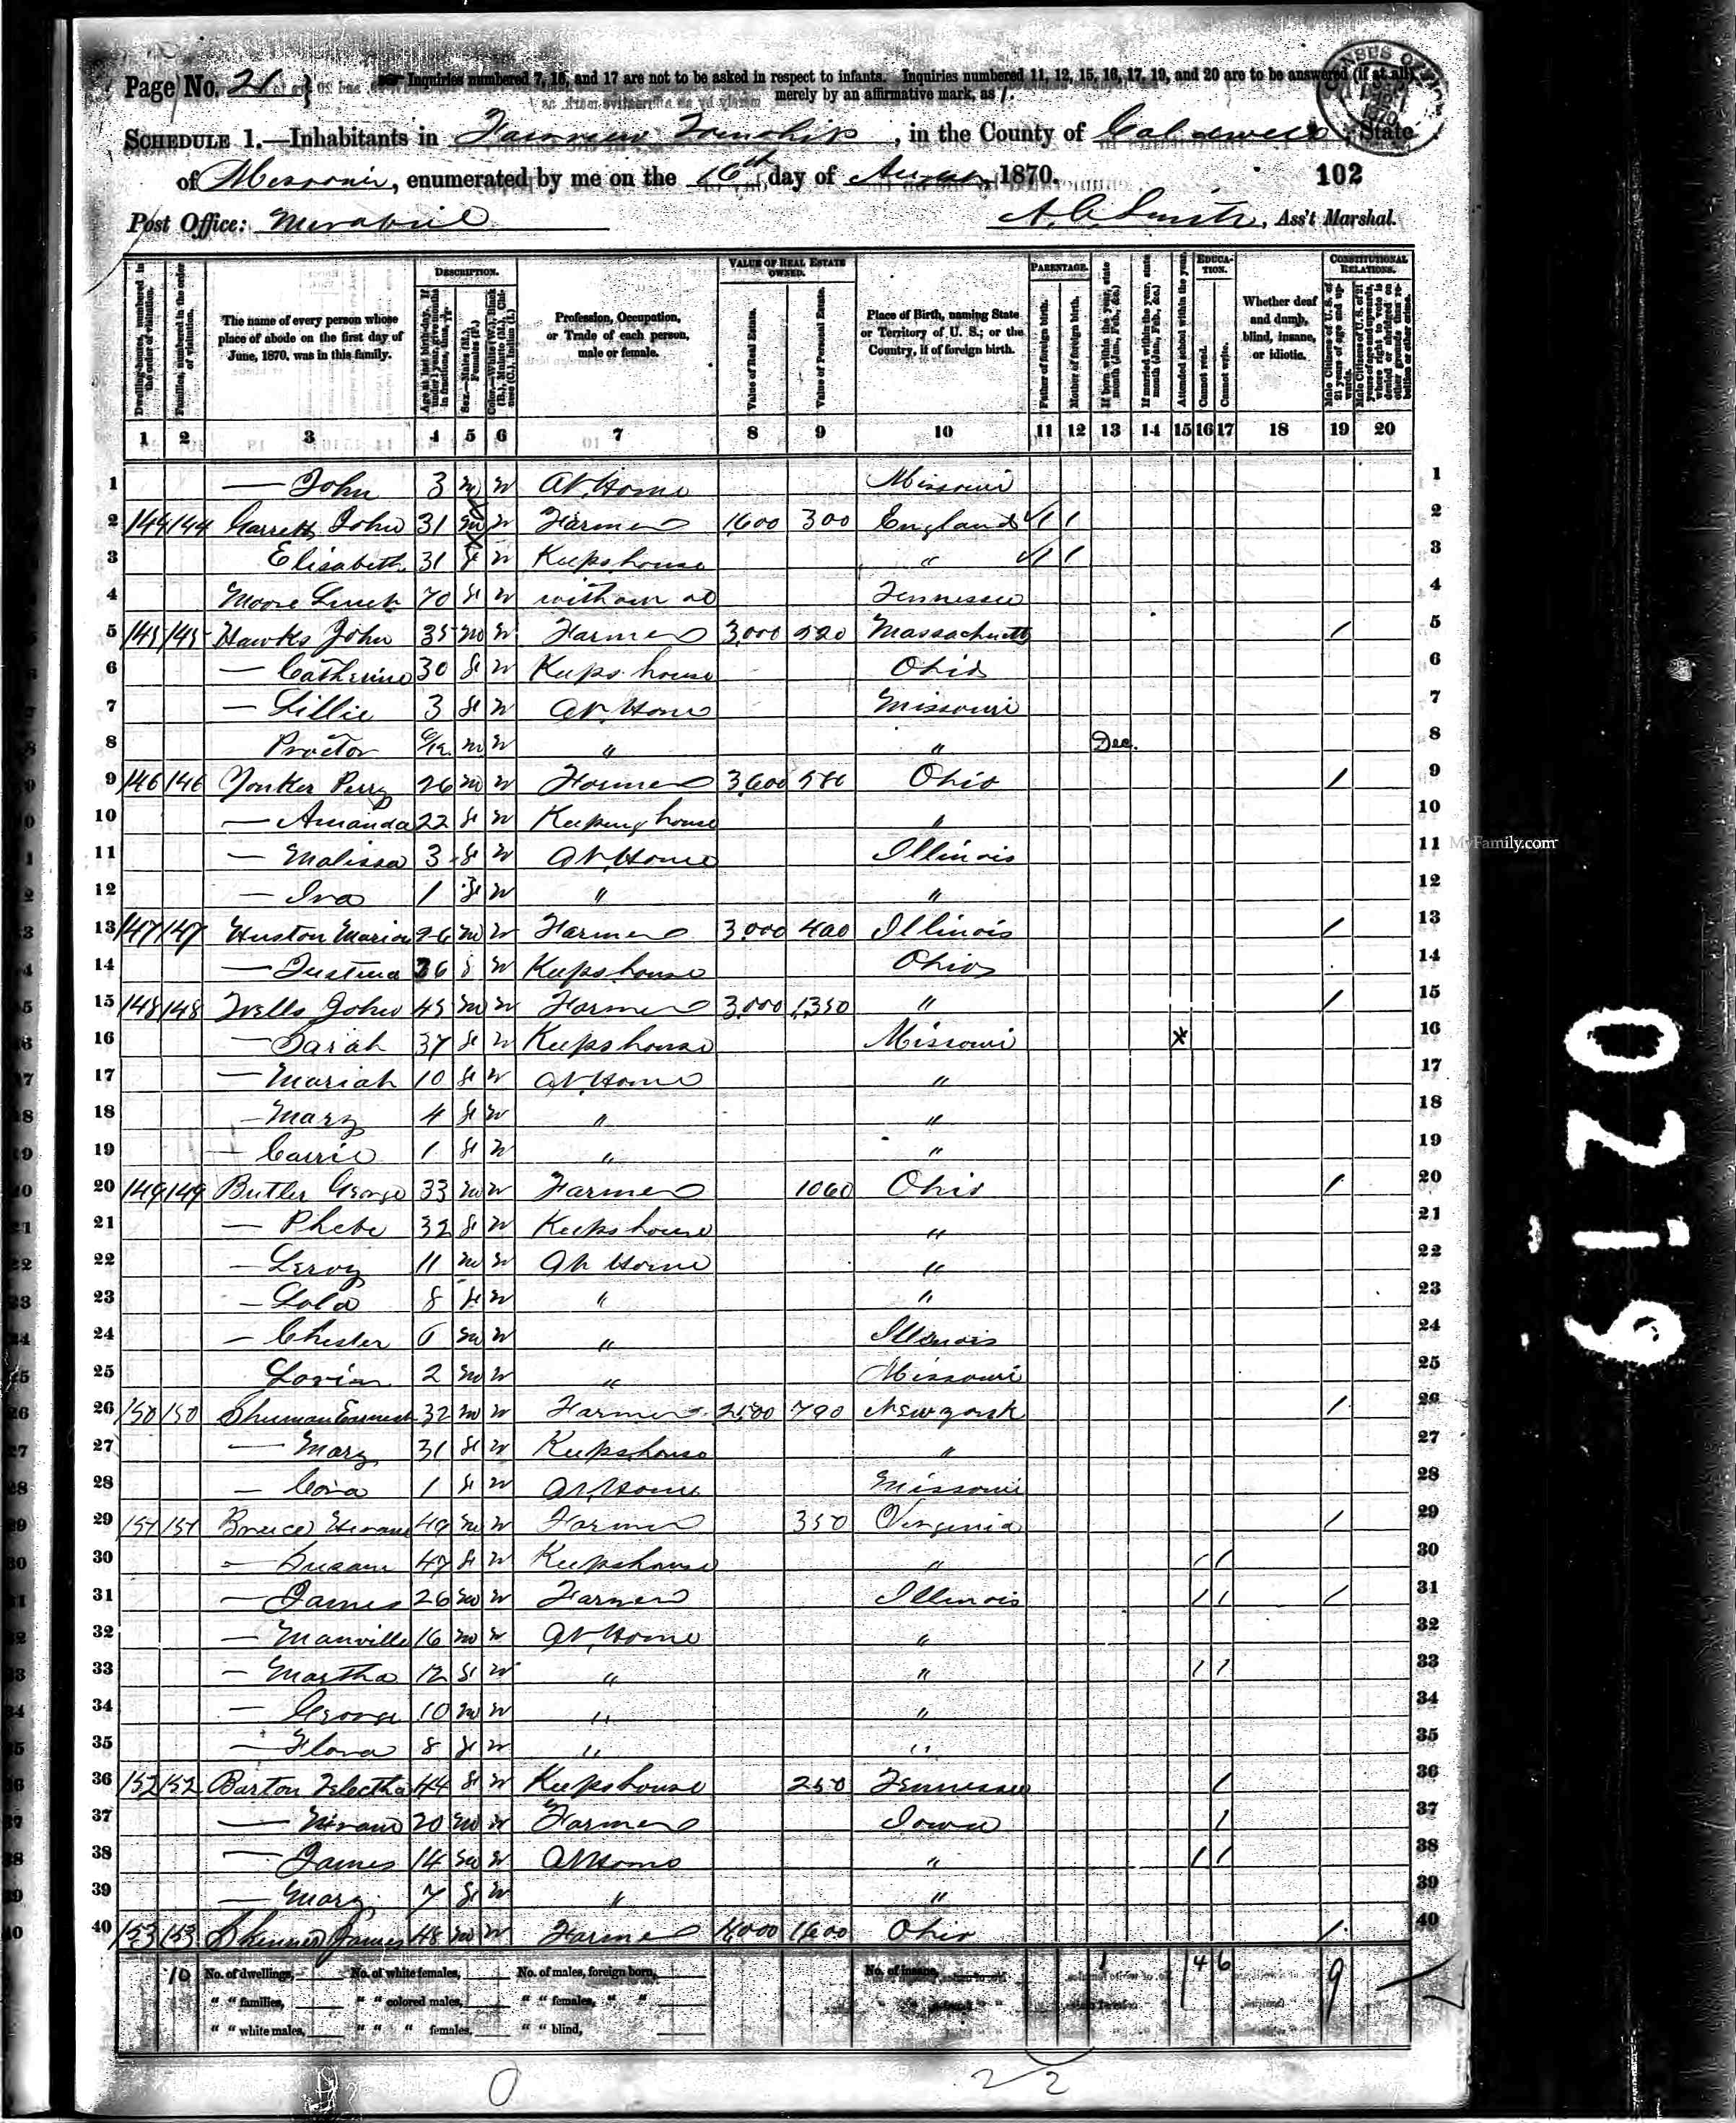 Page No. 21
Inquiries numbered 7, 16, and 17 are not to be asked in respect to infants. Inquiries numbered 11, 12, 15, 16, 17, 19, and 20 are to be answered (if at all)
merely by an affirmative mark, as /.
SCHEDULE 1.—Inhabitants in Fairview Township, in the County of Caldwell, State
of Missouri, enumerated by me on the 16th day of August, 1870. 102
Post Office: Mirabile A. C. Smith, Ass't Marshal.
DESCRIPTION. VALUE OF REAL ESTATE OWNED. PARENTAGE. EDUCATION. CONSTITUTIONAL RELATIONS.
Dwelling-houses, numbered in the order of visitation.
Families, numbered in the order of visitation.
The name of every person whose place of abode on the first day of June, 1870, was in this family.
Age at last birth-day. If under 1 year, give months in fractions, thus,
Sex.—Males (M.), Females (F.)
Color.—White (W.), Black (B.), Mulatto (M.), Chinese (C.), Indian (I.)
Profession, Occupation, or Trade of each person, male or female.
Value of Real Estate.
Value of Personal Estate.
Place of Birth, naming State or Territory of U. S.; or the Country, if of foreign birth.
Father of foreign birth.
Mother of foreign birth.
If born within the year, state month (Jan., Feb., &c.)
If married within the year, state month (Jan., Feb., &c.)
Attended school within the year.
Cannot read.
Cannot write.
Whether deaf and dumb, blind, insane, or idiotic.
Male Citizens of U. S. of 21 years of age and upwards.
Male Citizens of U. S. of 21 years of age and upwards, where right to vote is denied or abridged on other grounds than rebellion or other crime.
1 2 3 4 5 6 7 8 9 10 11 12 13 14 15 16 17 18 19 20
1 — John 3 M W At Home Missouri 1
2 144 144 Garrett John 31 M W Farmer 1,600 300 England / / 2
3 Elisabeth 31 F W Keeps house " / / 3
4 Moore 70 F W Tennessee 4
5 145 145 Hawks John 35 M W Farmer 3,000 520 Massachusetts / 5
6 — Catherine 30 F W Keeps house Ohio 6
7 — Lillie 3 F W At Home Missouri 7
8 Proctor 6/12 M W " " Dec. 8
9 146 146 Yonker Perry 26 M W Farmer 3,600 580 Ohio / 9
10 — Amanda 22 F W Keeping house " 10
11 — Malissa 3 F W At Home Illinois 11
12 — Iva 1 F W " " 12
13 147 147 Huston Marion 26 M W Farmer 3,000 400 Illinois / 13
14 — Justina 36 F W Keeps house Ohio 14
15 148 148 Wells John 45 M W Farmer 3,000 1,350 " / 15
16 — Sarah 37 F W Keeps house Missouri X 16
17 — Mariah 10 F W At Home " 17
18 — Mary 4 F W " " 18
19 — Carrie 1 F W " " 19
20 149 149 Butler George 33 M W Farmer 1060 Ohio / 20
21 — Phebe 32 F W Keeps house " 21
22 — Leroy 11 M W At Home " 22
23 — Lola 8 F W " " 23
24 — Chester 6 M W " Illinois 24
25 Lorin 2 M W " Missouri 25
26 150 150 Shuman Earnest 32 M W Farmer 2,500 790 New york / 26
27 — Mary 31 F W Keeps house " 27
28 — Cora 1 F W At Home Missouri 28
29 151 151 Bruce Hiram 49 M W Farmer 350 Virginia / 29
30 — Susan 47 F W Keeps house " / / 30
31 — James 26 M W Farmer Illinois / / / 31
32 — Manville 16 M W At Home " 32
33 — Martha 12 F W " " / / 33
34 — George 10 M W " " 34
35 — Flora 8 F W " " 35
36 152 152 Barton Electha 44 F W Keeps house 250 Tennessee / 36
37 — Hiram 20 M W Farmer Iowa / 37
38 — James 14 M W At Home " / / 38
39 — Mary 7 F W " " 39
40 153 153 James 48 M W Farmer 4,000 1600 Ohio / 40
10 No. of dwellings, No. of white females, No. of males, foreign born, No. of insane, 1 4 6 9
" " families, " " colored males, " " females, " "
" " white males, " " " females, " " blind,
22
MyFamily.com
619.20